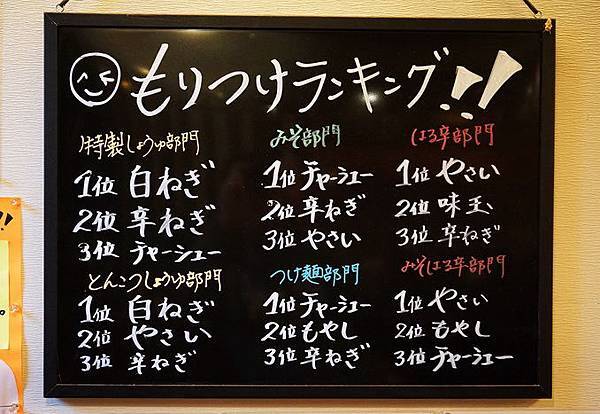 もりつけランキング!!
特製しょうゆ部門
1位 白ねぎ
2位 辛ねぎ
3位 チャーシュー
とんこつしょうゆ部門
1位 白ねぎ
2位 やさい
3位 辛ねぎ
みそ部門
1位 チャーシュー
2位 辛ねぎ
3位 やさい
つけ麺部門
1位 チャーシュー
2位 もやし
3位 辛ねぎ
はる辛部門
1位 やさい
2位 味玉
3位 辛ねぎ
みそはる辛部門
1位 やさい
2位 もやし
3位 チャーシュー